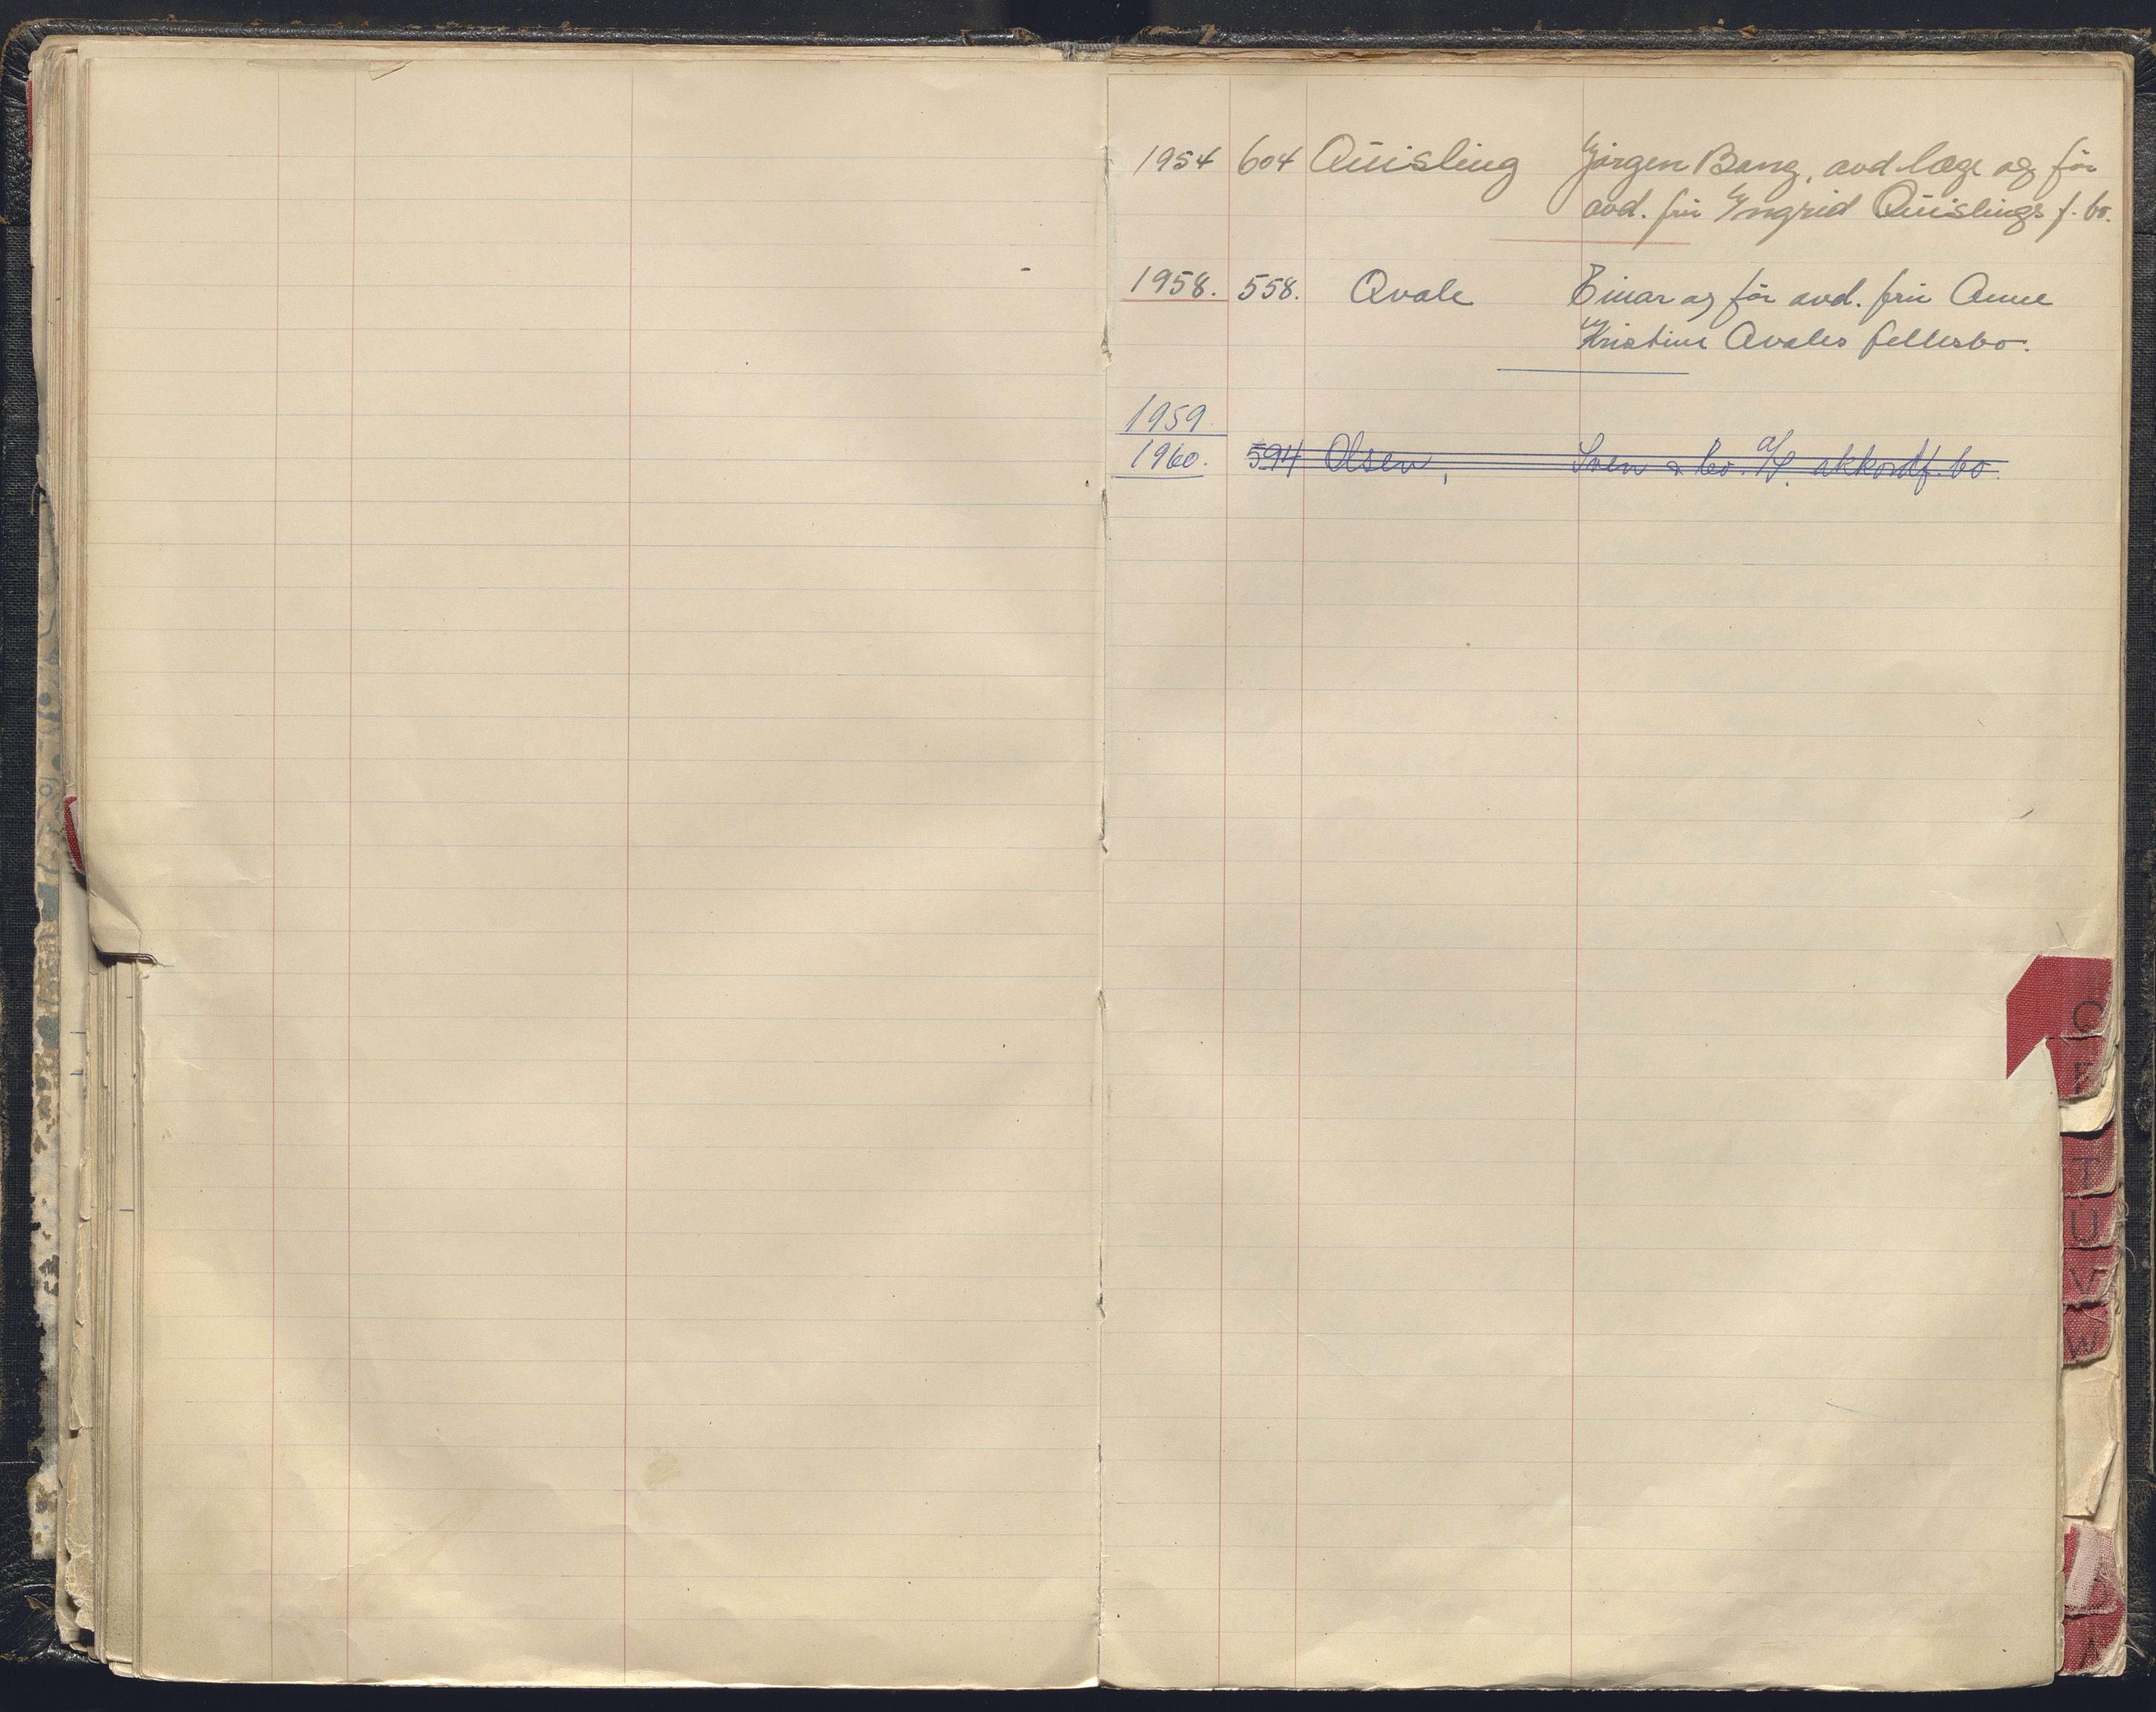 1954 604 Quisling Jørgen Bang, avd. læge og før
avd. fru Yngrid Quislings f. bo.
1958. 558. Qvale Einar og før avd. fru Anne
Kristine Qvales fellesbo.
1959.
1960. 594 Olsen, Sven & Co. A/S. akkordf. bo.
Q
R
T
U
V
W